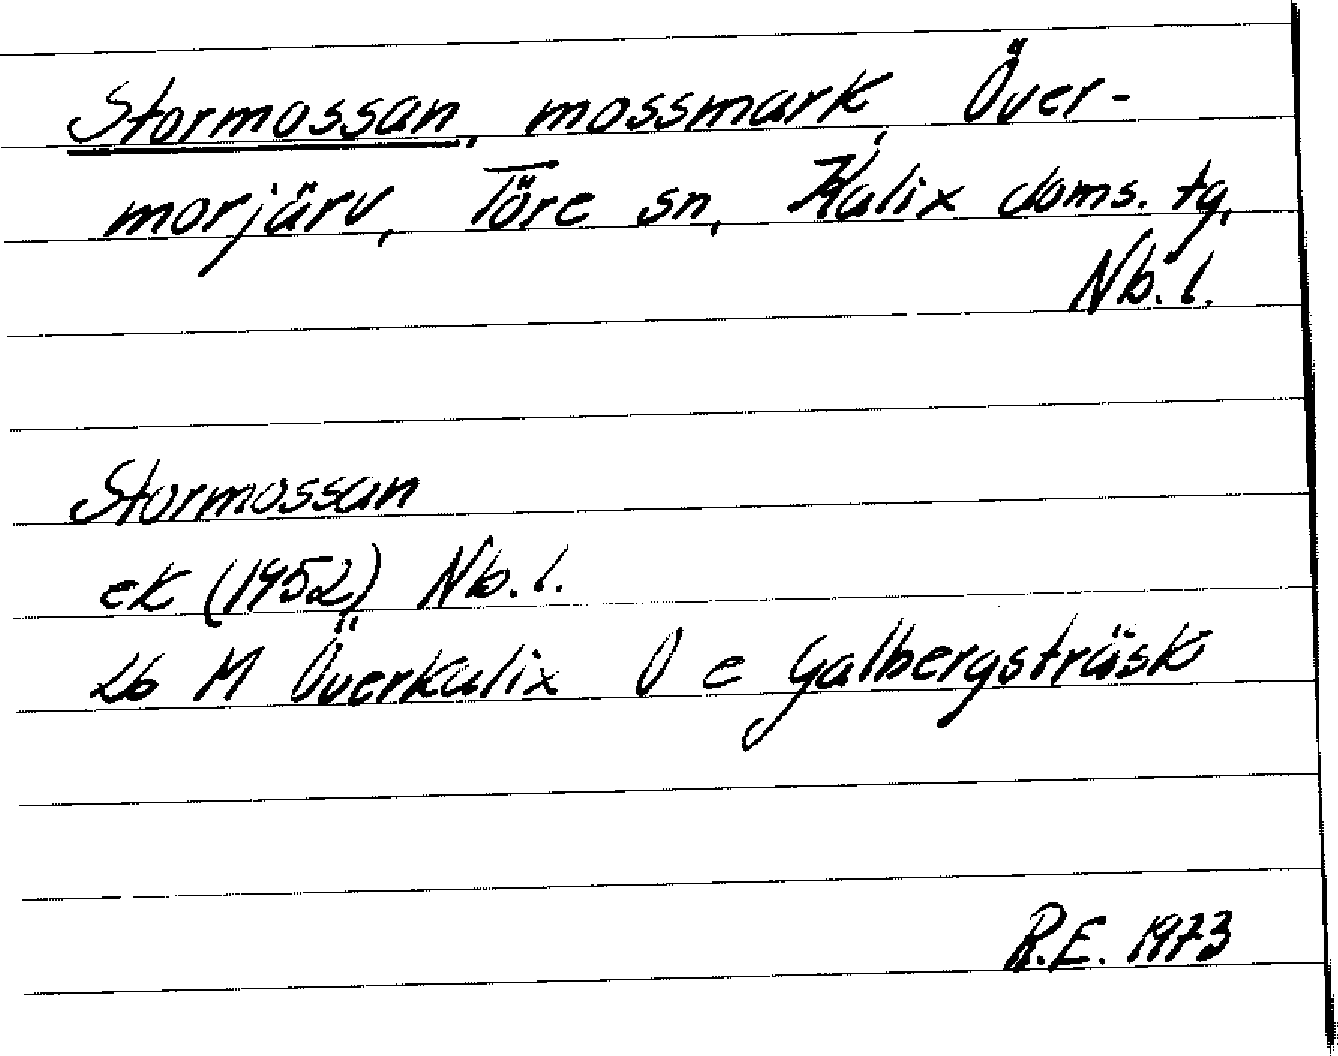 Stormossan, mossmark, Över-
morjärv, Töre sn, Kalix doms. tg,
Nb. l.
Stormossan
ek (1952) Nb. l.
26 M Överkalix O e Galbergsträsk
R.E. 1973